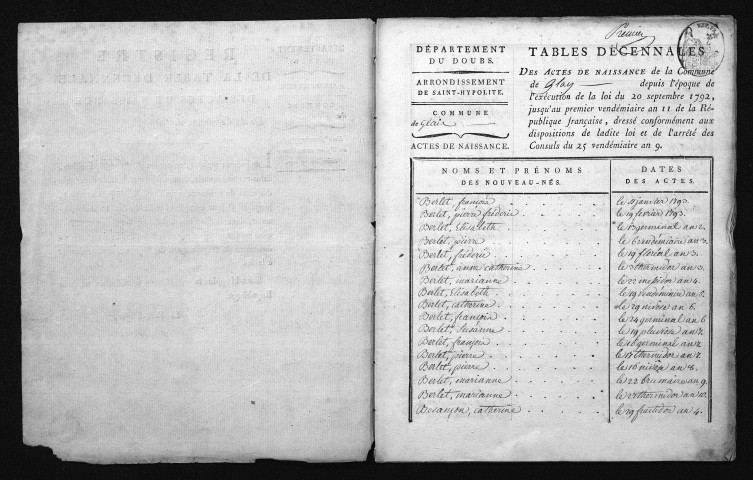 DÉPARTEMENT
DU DOUBS.
ARRONDISSEMENT
DE SAINT-HYPOLITE.
COMMUNE
de Glaie
ACTES DE NAISSANCE.
TABLES DÉCENNALES
DES ACTES DE NAISSANCE de la Commune
de Glay depuis l'époque de
l'exécution de la loi du 20 septembre 1792,
jusqu'au premier vendémiaire an 11 de la Ré-
publique française, dressé conformément aux
dispositions de ladite loi et de l'arrêté des
Consuls du 25 vendémiaire an 9.
NOMS ET PRÉNOMS
DES NOUVEAU-NÉS.
DATES
DES ACTES.
Berlet, françois le janvier 1793.
Berlet, pierre fréderic le 19 février 1793.
Berlet, Elisabeth le 13 germinal an 2.
Berlet, pierre le 6 vendémiaire an 3.
Berlet, fréderic le 19 floréal an 3.
Berlet, anne catherine le 3 thermidor an 3.
Berlet, marianne le 22 messidor an 4.
Berlet, Elisabeth le 19 vendémiaire an 5.
Berlet, catherine le 29 nivose an 6.
Berlet, françois le 24 germinal an 6
Berlet, Susanne le 19 pluviose an 7.
Berlet, françois le 16 germinal an 7
Berlet, pierre le 17 thermidor an 7.
Berlet, pierre le 16 nivose an 8.
Berlet, marianne le 22 brumaire an 9.
Berlet, marianne le 27 thermidor an 10.
Besançon, catherine le 29 fructidor an 4.
REGISTRE